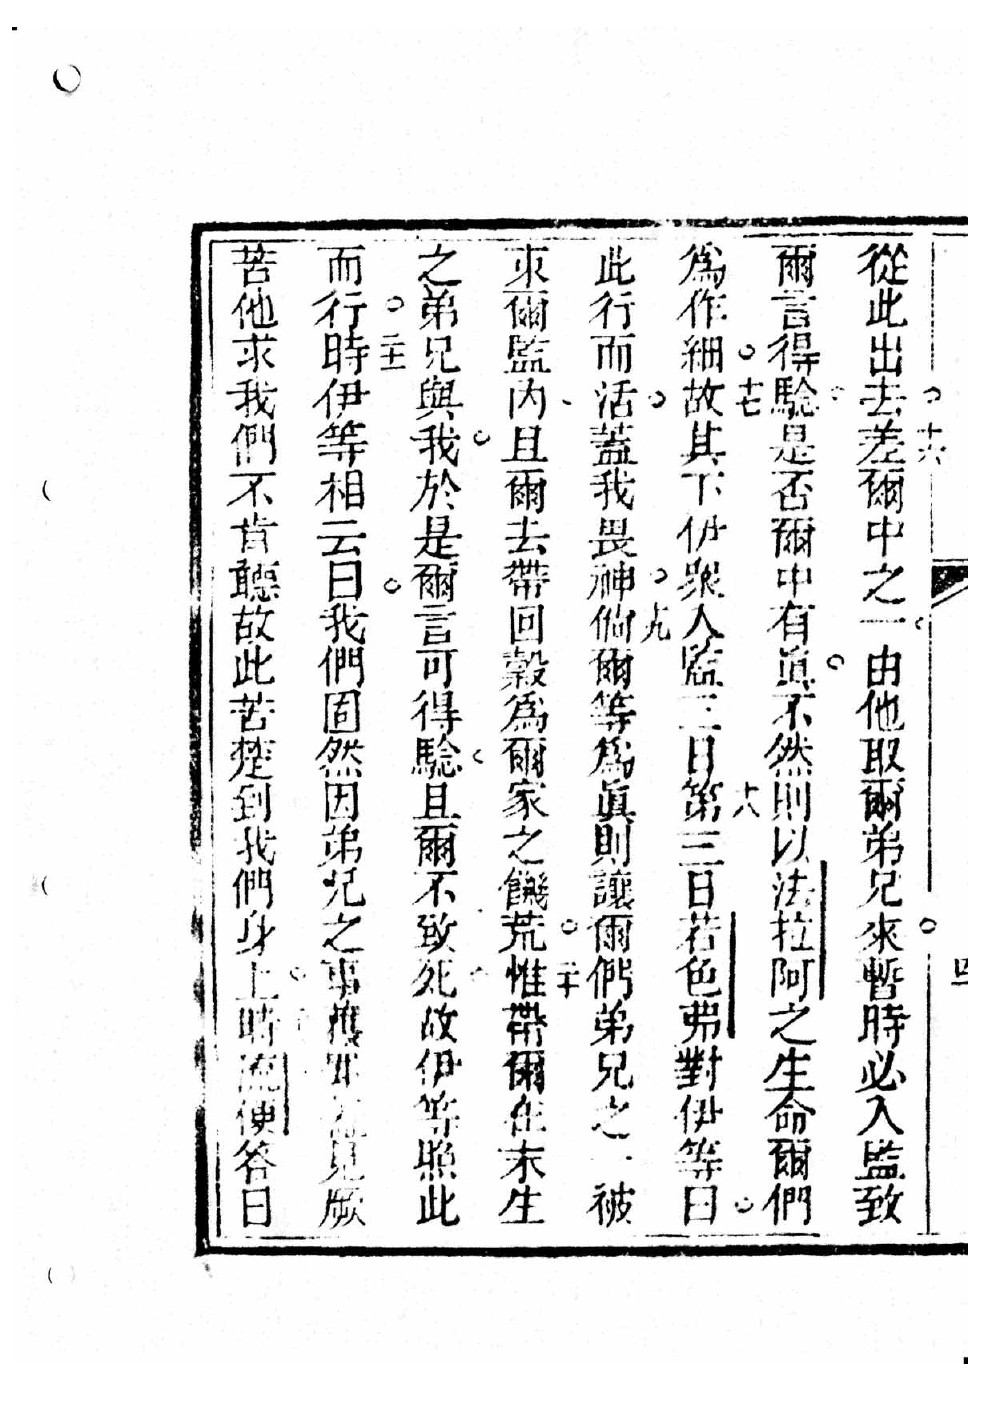 從此出去差爾中之一由他取爾弟兄來暫時必入監致
十六
爾言得騐是否爾中有眞不然則以法拉阿之生命爾們
爲作細故其下伊眾人監三日第三日若色弗對伊等曰
十七
十八
此行而活蓋我畏神倘爾等爲眞則讓爾們弟兄之一被
十九
束爾監內且爾去帶回穀爲爾家之饑荒惟帶爾在末生
二十
之弟兄與我於是爾言可得騐且爾不致死故伊等照此
而行時伊等相云曰我們固然因弟兄之事見厥
二十一
苦他求我們不肯聽故此苦楚到我們身上時流便答曰
四